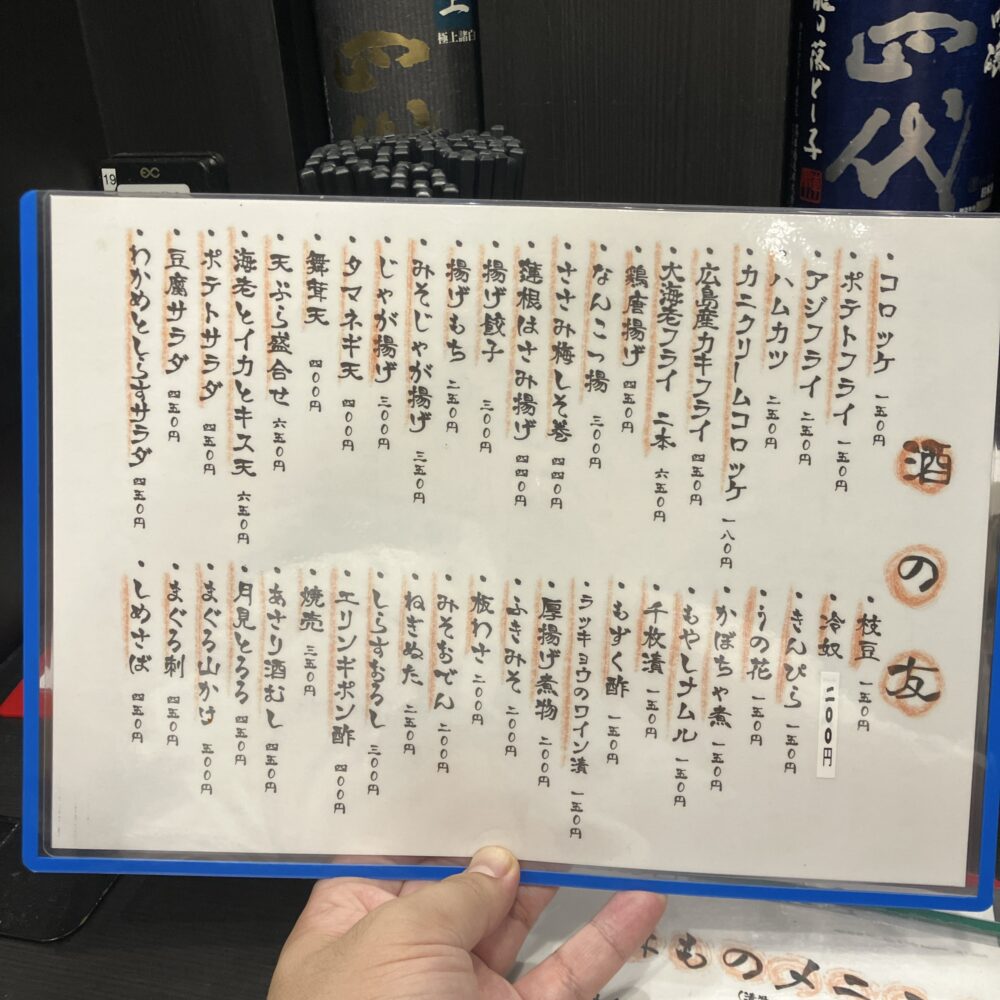 酒の友
・コロッケ 一五〇円
・ポテトフライ 一五〇円
・アジフライ 二五〇円
・ハムカツ 二五〇円
・カニクリームコロッケ 一八〇円
・広島産カキフライ 四五〇円
・大海老フライ 二本 六五〇円
・鶏唐揚げ 四五〇円
・なんこつ揚 三〇〇円
・ささみ梅しそ巻 四四〇円
・蓮根はさみ揚げ 四四〇円
・揚げ餃子 三〇〇円
・揚げもち 二五〇円
・みそじゃが揚げ 三五〇円
・じゃが揚げ 三〇〇円
・タマネギ天 四〇〇円
・舞茸天 四〇〇円
・天ぷら盛合せ 六五〇円
・海老とイカとキス天 六五〇円
・ポテトサラダ 四五〇円
・豆腐サラダ 四五〇円
・わかめとしらすサラダ 四五〇円
・枝豆 一五〇円
・冷奴 二〇〇円
・きんぴら 一五〇円
・うの花 一五〇円
・かぼちゃ煮 一五〇円
・もやしナムル 一五〇円
・千枚漬 一五〇円
・もずく酢 一五〇円
・ラッキョウのワイン漬 一五〇円
・厚揚げ煮物 二〇〇円
・ふきみそ 二〇〇円
・板わさ 二〇〇円
・みそおでん 二〇〇円
・ねぎぬた 二五〇円
・しらすおろし 三〇〇円
・エリンギポン酢 四〇〇円
・焼売 三五〇円
・あさり酒むし 四五〇円
・月見とろろ 四五〇円
・まぐろ山かけ 五〇〇円
・まぐろ刺 四五〇円
・しめさば 四五〇円
四代
極上諸白
四代
落とし子
19
ものメニ